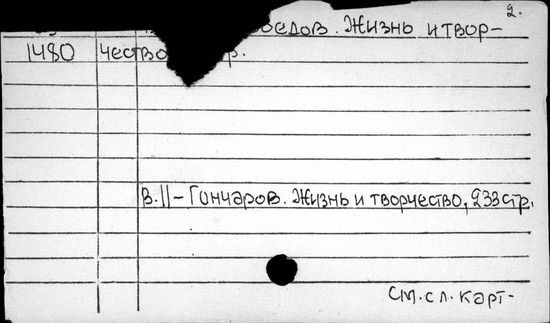 2.
оедов. Жизнь и твор-
1480 чество р.
В.II – Гончаров. Жизнь и творчество, 233 стр.
См. сл. карт-